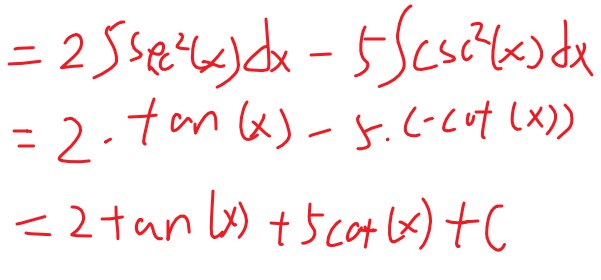 = 2∫sec²(x)dx - 5∫csc²(x)dx
= 2 · tan(x) - 5 · (-cot(x))
= 2tan(x) + 5cot(x) + C